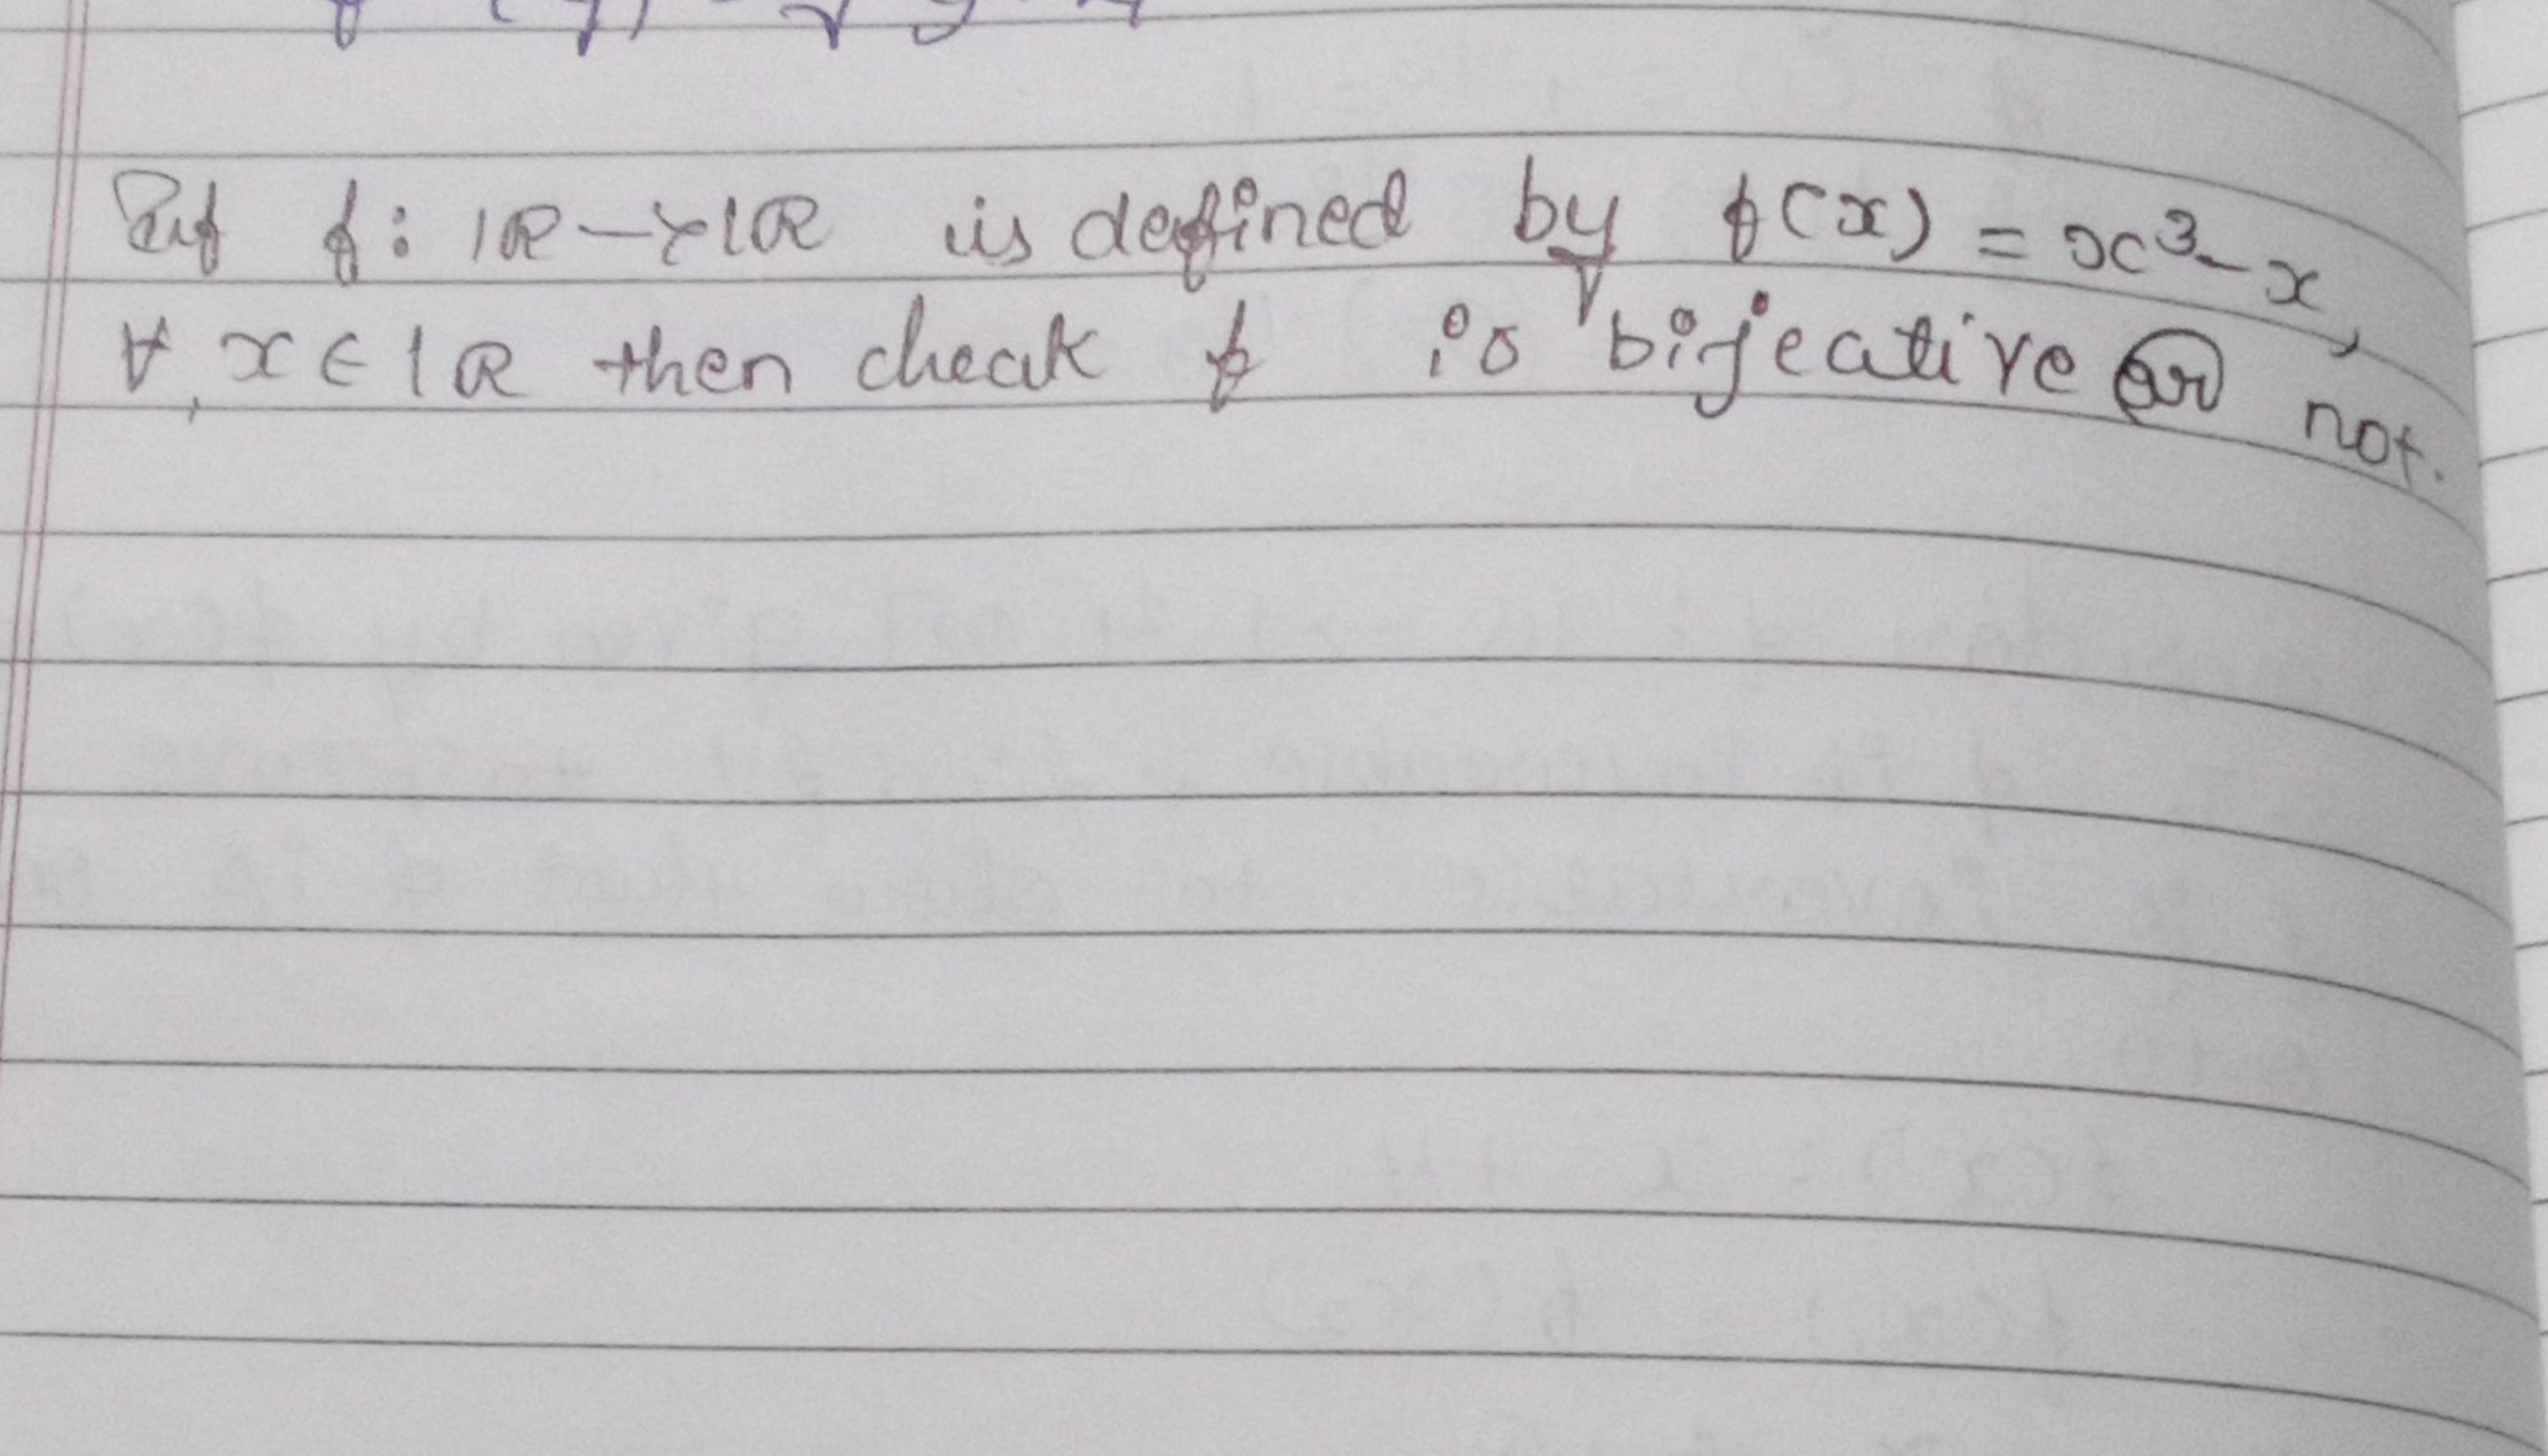 If f: IR → IR is defined by f(x) = x³ - x,
∀, x ∈ IR then cheak f is bijeative or not.